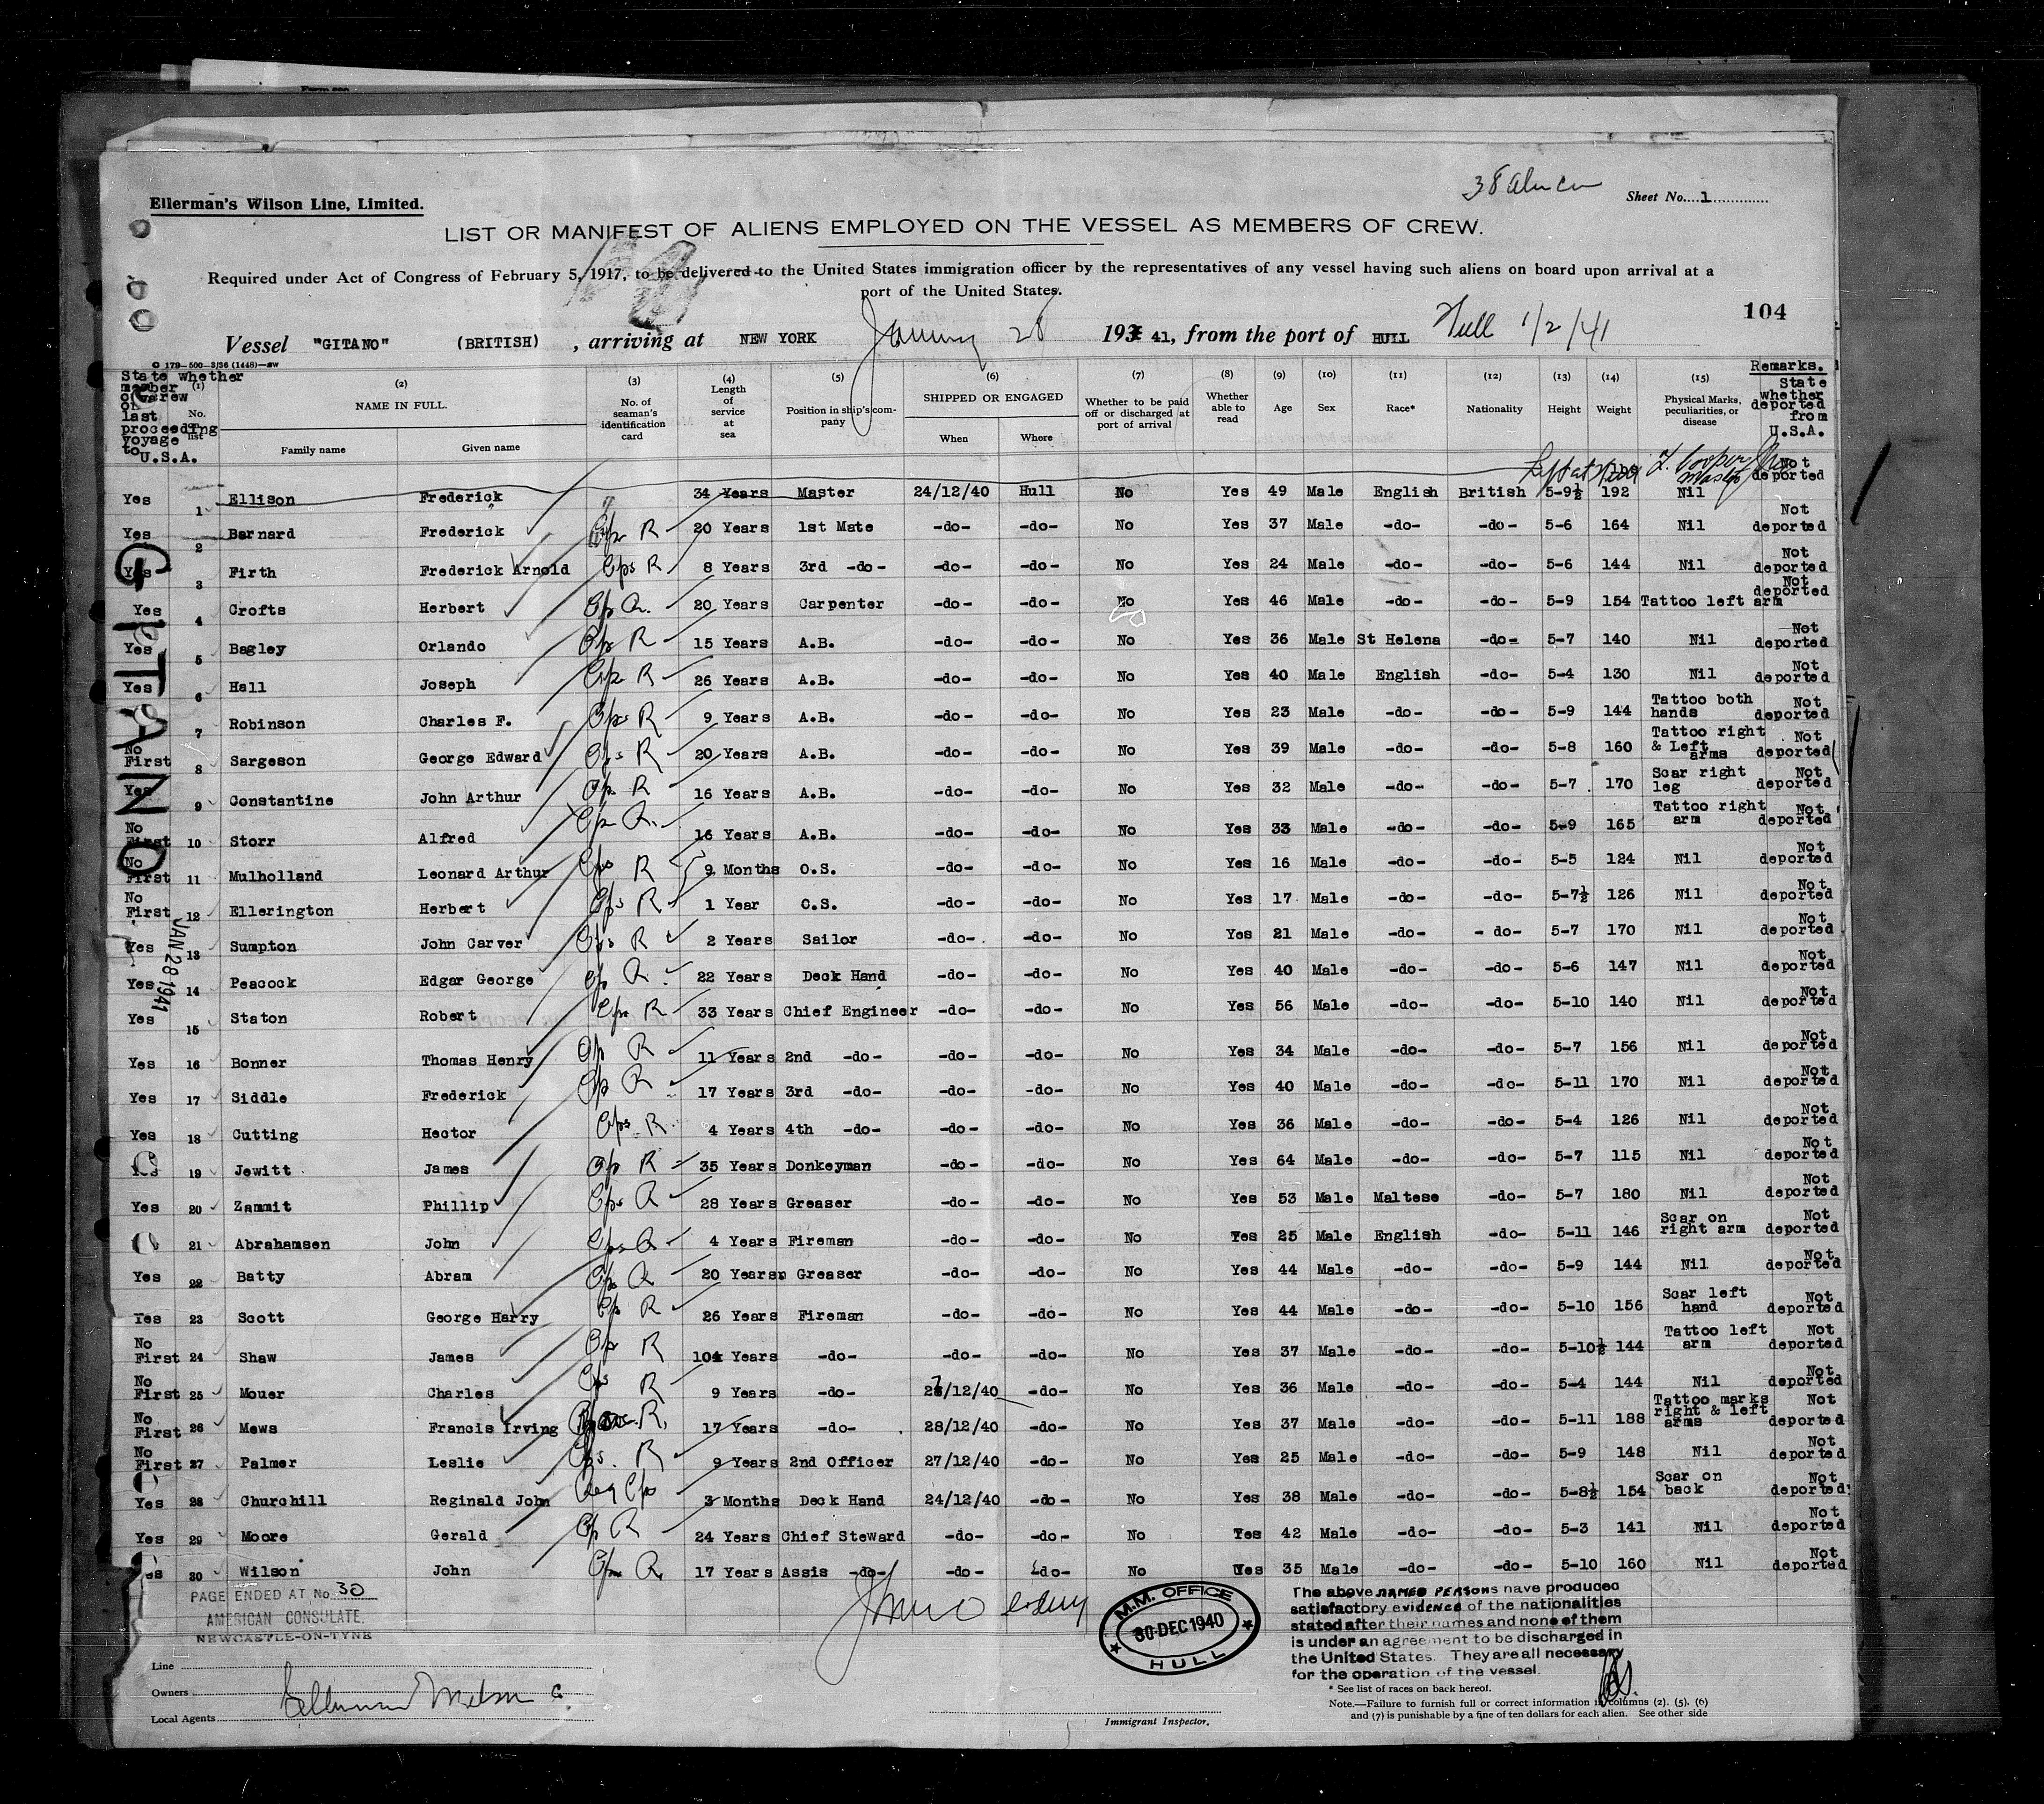 Ellerman's Wilson Line, Limited.
Sheet No. 1
LIST OR MANIFEST OF ALIENS EMPLOYED ON THE VESSEL AS MEMBERS OF CREW.
Required under Act of Congress of February 5, 1917, to be delivered to the United States immigration officer by the representatives of any vessel having such aliens on board upon arrival at a
port of the United States.
104
Vessel "GITANO" (BRITISH), arriving at NEW YORK January 28 193 41, from the port of HULL Hull 1/2/41
179-500-3/36 (1448)-SW
State whether member of crew on last proceeding voyage to U.S.A.
(1) No. on list
(2) NAME IN FULL. Family name Given name
(3) No. of seaman's identification card
(4) Length of service at sea
(5) Position in ship's company
(6) SHIPPED OR ENGAGED When Where
(7) Whether to be paid off or discharged at port of arrival
(8) Whether able to read
(9) Age
(10) Sex
(11) Race*
(12) Nationality
(13) Height
(14) Weight
(15) Physical Marks, peculiarities, or disease
Remarks. State whether deported from U.S.A.
Yes 1 Ellison Frederick 34 Years Master 24/12/40 Hull No Yes 49 Male English British 5-9½ 192 Nil Not deported
Yes 2 Barnard Frederick 20 Years 1st Mate -do- -do- No Yes 37 Male -do- -do- 5-6 164 Nil Not deported
Yes 3 Firth Frederick Arnold 8 Years 3rd -do- -do- -do- No Yes 24 Male -do- -do- 5-6 144 Nil Not deported
Yes 4 Crofts Herbert 20 Years Carpenter -do- -do- No Yes 46 Male -do- -do- 5-9 154 Tattoo left arm Not deported
Yes 5 Bagley Orlando 15 Years A.B. -do- -do- No Yes 36 Male St Helena -do- 5-7 140 Nil Not deported
Yes 6 Hall Joseph 26 Years A.B. -do- -do- No Yes 40 Male English -do- 5-4 130 Nil Not deported
7 Robinson Charles F. 9 Years A.B. -do- -do- No Yes 23 Male -do- -do- 5-9 144 Tattoo both hands Not deported
No First 8 Sargeson George Edward 20 Years A.B. -do- -do- No Yes 39 Male -do- -do- 5-8 160 Tattoo right & Left arms Not deported
Yes 9 Constantine John Arthur 16 Years A.B. -do- -do- No Yes 32 Male -do- -do- 5-7 170 Scar right leg Not deported
No First 10 Storr Alfred 16 Years A.B. -do- -do- No Yes 33 Male -do- -do- 5-9 165 Tattoo right arm Not deported
No First 11 Mulholland Leonard Arthur 9 Months O.S. -do- -do- No Yes 16 Male -do- -do- 5-5 124 Nil Not deported
No First 12 Ellerington Herbert 1 Year O.S. -do- -do- No Yes 17 Male -do- -do- 5-7½ 126 Nil Not deported
Yes 13 Sumpton John Carver 2 Years Sailor -do- -do- No Yes 21 Male -do- -do- 5-7 170 Nil Not deported
Yes 14 Peacock Edgar George 22 Years Deck Hand -do- -do- No Yes 40 Male -do- -do- 5-6 147 Nil Not deported
Yes 15 Staton Robert 33 Years Chief Engineer -do- -do- No Yes 56 Male -do- -do- 5-10 140 Nil Not deported
Yes 16 Bonner Thomas Henry 11 Years 2nd -do- -do- -do- No Yes 34 Male -do- -do- 5-7 156 Nil Not deported
Yes 17 Siddle Frederick 17 Years 3rd -do- -do- -do- No Yes 40 Male -do- -do- 5-11 170 Nil Not deported
Yes 18 Cutting Hector 4 Years 4th -do- -do- -do- No Yes 36 Male -do- -do- 5-4 126 Nil Not deported
19 Jewitt James 35 Years Donkeyman -do- -do- No Yes 64 Male -do- -do- 5-7 115 Nil Not deported
Yes 20 Zammit Phillip 28 Years Greaser -do- -do- No Yes 53 Male Maltese -do- 5-7 180 Nil Not deported
21 Abrahamsen John 4 Years Fireman -do- -do- No Yes 25 Male English -do- 5-11 146 Scar on right arm Not deported
Yes 22 Batty Abram 20 Years Greaser -do- -do- No Yes 44 Male -do- -do- 5-9 144 Nil Not deported
Yes 23 Scott George Harry 26 Years Fireman -do- -do- No Yes 44 Male -do- -do- 5-10 156 Scar left hand Not deported
No First 24 Shaw James 10 Years -do- -do- -do- No Yes 37 Male -do- -do- 5-10½ 144 Tattoo left arm Not deported
No First 25 Mouer Charles 9 Years -do- 27/12/40 -do- No Yes 36 Male -do- -do- 5-4 144 Nil Not deported
No First 26 Mews Francis Irving 17 Years -do- 28/12/40 -do- No Yes 37 Male -do- -do- 5-11 188 Tattoo marks right & left arms Not deported
No First 27 Palmer Leslie 9 Years 2nd Officer 27/12/40 -do- No Yes 25 Male -do- -do- 5-9 148 Nil Not deported
Yes 28 Churchill Reginald John 3 Months Deck Hand 24/12/40 -do- No Yes 38 Male -do- -do- 5-8½ 154 Scar on back Not deported
Yes 29 Moore Gerald 24 Years Chief Steward -do- -do- No Yes 42 Male -do- -do- 5-3 141 Nil Not deported
Yes 30 Wilson John 17 Years Assis -do- -do- -do- No Yes 35 Male -do- -do- 5-10 160 Nil Not deported
GITANO
JAN 28 1941
PAGE ENDED AT No. 30
AMERICAN CONSULATE.
NEWCASTLE-ON-TYNE
M.M. OFFICE
30 DEC 1940
HULL
The above NAMED PERSONS have produced
satisfactory evidence of the nationalities
stated after their names and none of them
is under an agreement to be discharged in
the United States. They are all necessary
for the operation of the vessel.
* See list of races on back hereof.
Line
Owners
Local Agents
Immigrant Inspector.
Note.—Failure to furnish full or correct information in columns (2). (5). (6)
and (7) is punishable by a fine of ten dollars for each alien. See other side